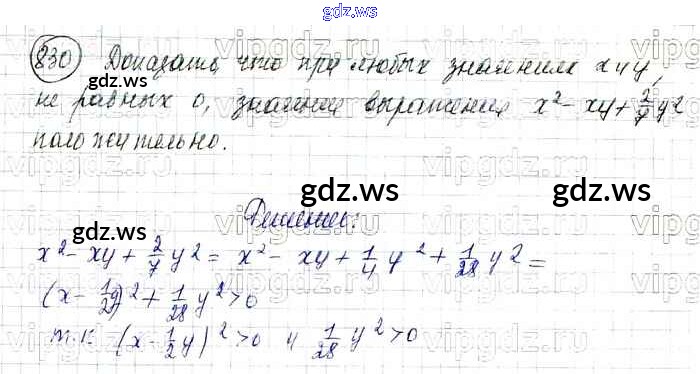 gdz.ws
830 Доказать, что при любых значениях x и y,
не равных 0, значение выражения x² - xy + 2/7 y²
положительно.
gdz.ws gdz.ws
Решение:
x² - xy + 2/7 y² = x² - xy + 1/4 y² + 1/28 y² =
(x - 1/2 y)² + 1/28 y² > 0
т.к. (x - 1/2 y)² > 0 и 1/28 y² > 0
gdz.ws gdz.ws